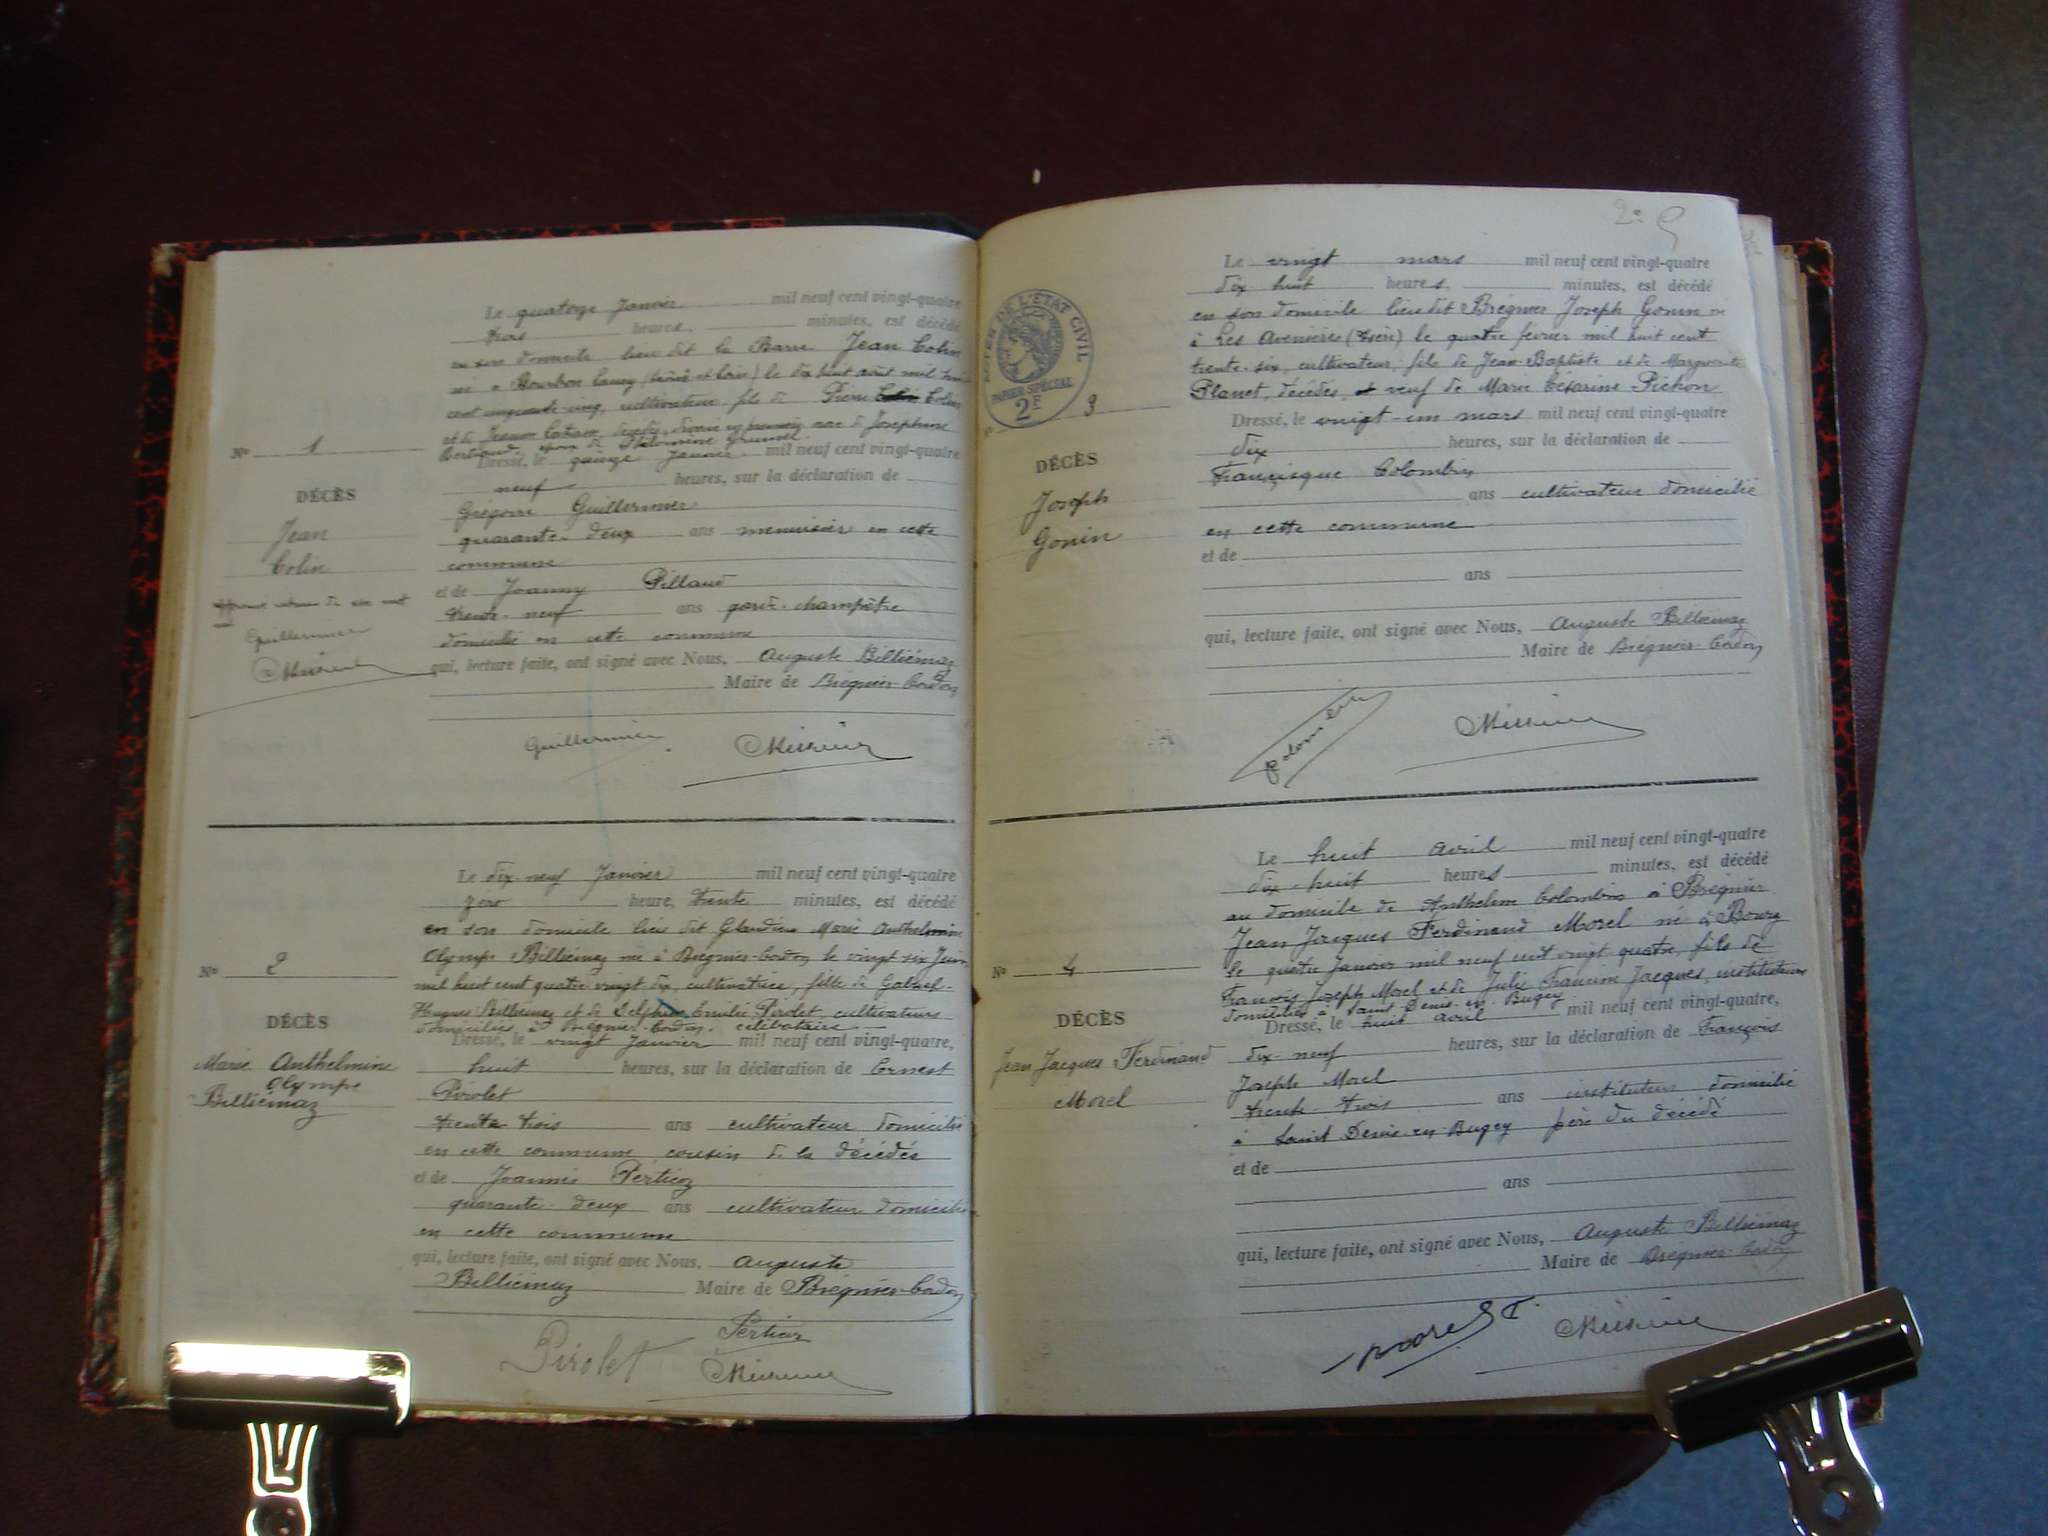 Le quatorze Janvier mil neuf cent vingt-quatre
trois heures, minutes, est décédé
en son domicile lieu dit la Barre Jean Colin
né à Bourbon Lancy (Saône et Loire) le dix huit août mil huit
cent cinquante-cinq, cultivateur fils de Pierre Colin
et de décédés, divorcé en premières noces de Josephine
Bertrand, époux de Philomène
Nº 1
Dressé, le quinze Janvier mil neuf cent vingt-quatre
neuf heures, sur la déclaration de
DÉCÈS
Grégoire Guillermier
Jean
quarante-deux ans menuisier en cette
Colin
commune
et de Joanny Pillaud
trente-neuf ans garde-champêtre
Guillermier
domicilié en cette commune
qui, lecture faite, ont signé avec Nous, Auguste Billiémaz
Maire de Brégnier-Cordon
Guillermier
Le dix-neuf Janvier mil neuf cent vingt-quatre
zéro heure, trente minutes, est décédé
en son domicile lieu dit Glandieu Marie Anthelmine
Olympe Billiémaz née à Brégnier-Cordon le vingt six Juin
Nº 2
mil huit cent quatre-vingt-dix, cultivatrice, fille de Gabriel-
Hugues Billiémaz et de Delphine Emilie Pirolet cultivateurs
domiciliés à Brégnier-Cordon. célibataire
DÉCÈS
Dressé, le vingt Janvier mil neuf cent vingt-quatre,
Marie Anthelmine
huit heures, sur la déclaration de Ernest
Olympe
Pirolet
Billiémaz
trente trois ans cultivateur domicilié
en cette commune cousin de la décédée
et de Joannès Perticoz
quarante-deux ans cultivateur domicilié
en cette commune
qui, lecture faite, ont signé avec Nous, Auguste
Billiémaz Maire de Brégnier-Cordon
Perticoz
Pirolet
2
Le vingt mars mil neuf cent vingt-quatre
dix-huit heures, minutes, est décédé
en son domicile lieu dit Brégnier Joseph Gonin né
à Les Avenières (Isère) le quatre février mil huit cent
trente-six, cultivateur, fils de Jean-Baptiste et de Marguerite
Planet, décédés, veuf de Marie Césarine Pichon
ACTES DE L'ÉTAT CIVIL
PAPIER SPÉCIAL
2F
3
Dressé, le vingt-un mars mil neuf cent vingt-quatre
dix heures, sur la déclaration de
DÉCÈS
Francisque Colombin
Joseph
ans cultivateur domicilié
Gonin
en cette commune
et de
ans
qui, lecture faite, ont signé avec Nous, Auguste Billiémaz
Maire de Brégnier-Cordon
Colombin
Le huit avril mil neuf cent vingt-quatre
dix-huit heures minutes, est décédé
au domicile de Anthelme Colombin à Brégnier
Jean Jacques Ferdinand Morel né à Bourg
Nº 4
le quatre Janvier mil neuf cent vingt quatre, fils de
François Joseph Morel et de Julie Francine Jacques, instituteurs
domiciliés à Saint Denis-en-Bugey
DÉCÈS
Dressé, le huit avril mil neuf cent vingt-quatre,
Jean Jacques Ferdinand
dix-neuf heures, sur la déclaration de François
Morel
Joseph Morel
trente-trois ans instituteur domicilié
à Saint Denis-en-Bugey père du décédé
et de
ans
qui, lecture faite, ont signé avec Nous, Auguste Billiémaz
Maire de Brégnier-Cordon